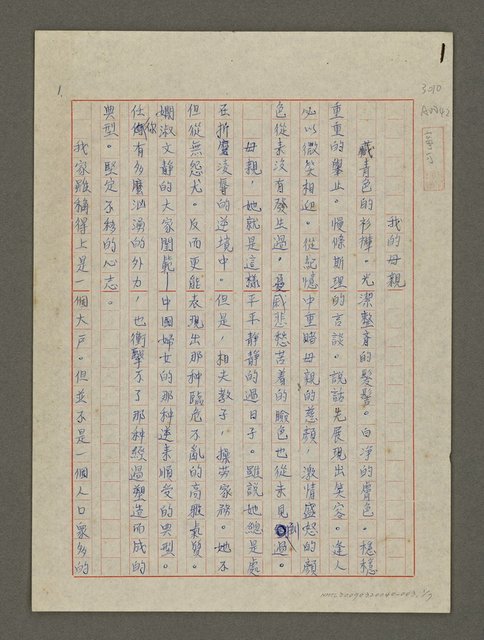 1
1.
3010
我的母親
藏青色的衫褲。光潔整齊的髮髻。白净的膚色。穩穩
重重的舉止。慢條斯理的言談。說話先展現出笑容。逢人
必以微笑相迎。從記憶中重睹母親的慈顏，激情盛怒的顏
色從來沒有發生過。憂戚悲愁苦着的臉色也從未見到過。
母親，她就是這樣平平靜靜的過日子。雖說她總是處
在折磨凌辱的逆境中。但是，相夫教子，操勞家務。她不
但從無怨尤。反而更能表現出那種臨危不亂的高雅氣質。
嫻淑文靜的大家閨範—中國婦女的那種逆來順受的典型。
任你有多麼洶湧的外力，也衝擊不了那種經過塑造而成的
典型。堅定不移的心志。
我家雖稱得上是一個大戶。但並不是一個人口衆多的
NMTL20090320040-003. 1/7